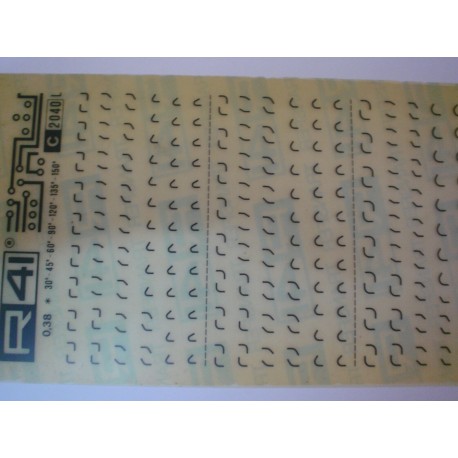 R41®
C 2040 L
0,38 * 30° 45° -60° -90° -120° 135° -150°